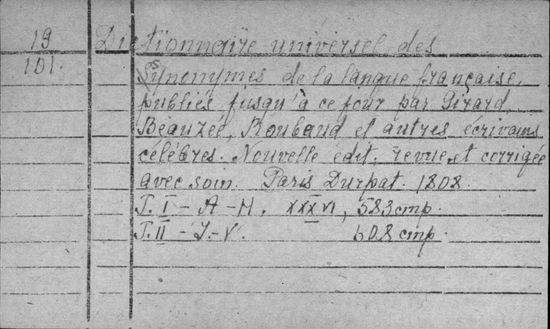 19 Dictionnaire universel des
101. Synonymes de la langue française,
publiés jusqu'à ce jour par Girard,
Beauzée, Roubaud et autres écrivains
célèbres. Nouvelle édit. revue et corrigée
avec soin. Paris Durpat. 1808.
T. I - A - H. XXXVI, 583 cmp.
T. II - I. - V. 608 cmp.